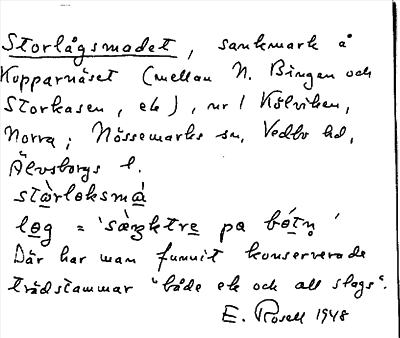 Storlågsmadet, sankmark å
Kopparnäset (mellan N. Bingen och
Storkasen, ek), nr 1 Kölviken,
Norra; Nössemarks sn, Vedbo hd,
Älvsborgs l.
stårloksmá
log = 'sæŋktre pa bótn'
Där har man funnit konserverade
trädstammar "både ek och all slags".
E. Rosell 1948